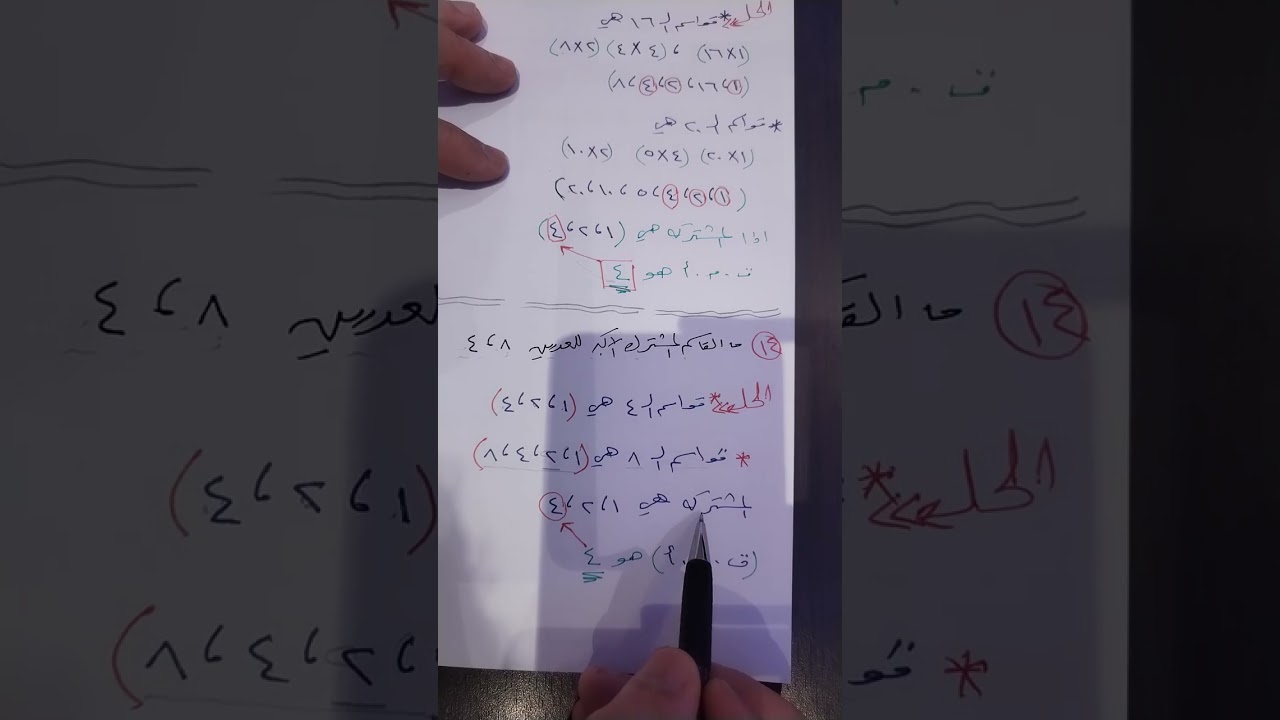 الحل * قواسم الـ ١٦ هي
(١×١٦) ، (٤×٤) (٢×٨)
(١، ١٦، ٢، ٤، ٨)
* قواسم الـ ٢٠ هي
(١×٢٠) (٤×٥) (٢×١٠)
(١، ٢، ٤، ٥، ١٠، ٢٠)
اذا المشتركة هي (١، ٢، ٤)
ق.م.أ هو ٤
١٤ ما القاسم المشترك الأكبر للعددين ٨، ٤
الحل * قواسم الـ ٤ هي (١، ٢، ٤)
* قواسم الـ ٨ هي (١، ٢، ٤، ٨)
المشتركة هي ١، ٢، ٤
(ق. .أ) هو ٤